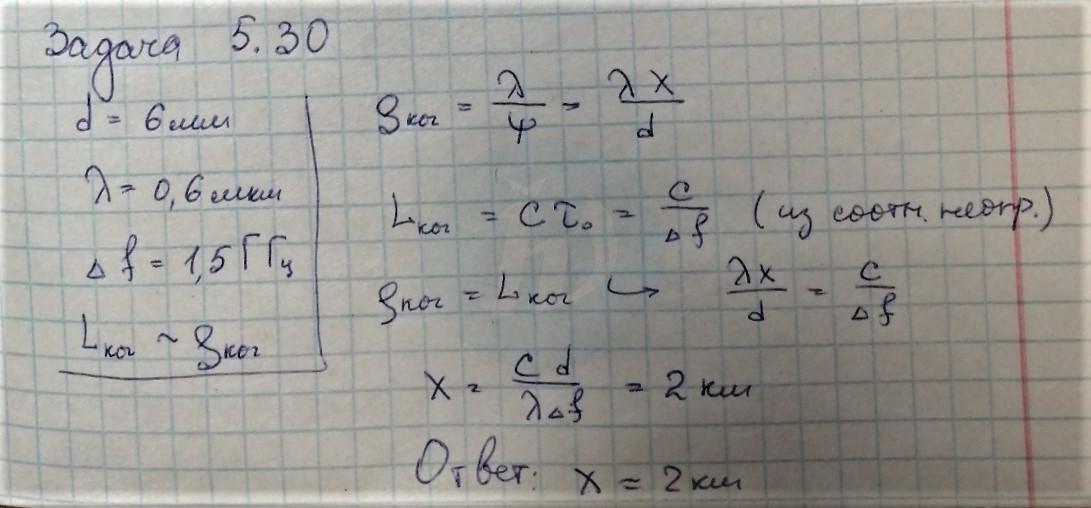 Задача 5.30
d = 6 мм
λ = 0,6 мкм
Δf = 1,5 ГГц
Lког ~ ρког
ρког = λ/ψ = λx/d
Lког = cτ₀ = c/Δf (из соотн. неопр.)
ρког = Lког ↪ λx/d = c/Δf
x = cd/λΔf = 2 км
Ответ: x = 2 км